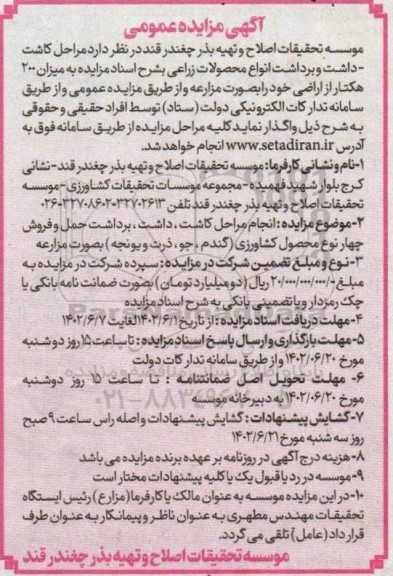 آگهی مزایده عمومی
موسسه تحقیقات اصلاح و تهیه بذر چغندر قند در نظر دارد مراحل کاشت
-داشت و برداشت انواع محصولات زراعی بشرح اسناد مزایده به میزان ۲۰۰
هکتار از اراضی خود را بصورت مزارعه و از طریق مزایده عمومی و از طریق
سامانه تدارکات الکترونیکی دولت (ستاد) توسط افراد حقیقی و حقوقی
به شرح ذیل واگذار نماید کلیه مراحل مزایده از طریق سامانه فوق به
آدرس www.setadiran.ir انجام خواهد شد.
۱-نام و نشانی کارفرما: موسسه تحقیقات اصلاح و تهیه بذر چغندر قند-نشانی
کرج بلوار شهید فهمیده -مجموعه موسسات تحقیقات کشاورزی-موسسه
تحقیقات اصلاح و تهیه بذر چغندر قند تلفن ۳۲۷۰۲۶۱۳-۰۲۶-۳۲۷۰۸۶۰۲
۲-موضوع مزایده : انجام مراحل کاشت ، داشت ، برداشت حمل و فروش
چهار نوع محصول کشاورزی (گندم ، جو ، ذرت و یونجه ) بصورت مزارعه
۳-نوع و مبلغ تضمین شرکت در مزایده : سپرده شرکت در مزایده به
مبلغ -/۲۰/۰۰۰/۰۰۰/۰۰۰ ریال (دو میلیارد تومان ) بصورت ضمانت نامه بانکی یا
چک رمزدار و یا تضمینی بانکی به شرح اسناد مزایده
۴-مهلت دریافت اسناد مزایده : از تاریخ ۱۴۰۲/۶/۱ لغایت ۱۴۰۲/۶/۷
۵-مهلت بارگذاری و ارسال پاسخ اسناد مزایده : تا ساعت ۱۵ روز دوشنبه
مورخ ۱۴۰۲/۰۶/۲۰ و از طریق سامانه تدارکات دولت
۶- مهلت تحویل اصل ضمانتنامه : تا ساعت ۱۵ روز دوشنبه
مورخ ۱۴۰۲/۰۶/۲۰ به دبیرخانه موسسه
۷-گشایش پیشنهادات : گشایش پیشنهادات واصله راس ساعت ۹ صبح
روز سه شنبه مورخ ۱۴۰۲/۶/۲۱
۸-هزینه درج آگهی در روزنامه بر عهده برنده مزایده می باشد
۹-موسسه در رد یا قبول یک یا کلیه پیشنهادات مختار است
۱۰-در این مزایده موسسه به عنوان مالک یا کارفرما (مزارع ) رئیس ایستگاه
تحقیقات مهندس مطهری به عنوان ناظر و پیمانکار به عنوان طرف
قرارداد (عامل) تلقی می گردد.
موسسه تحقیقات اصلاح و تهیه بذر چغندر قند